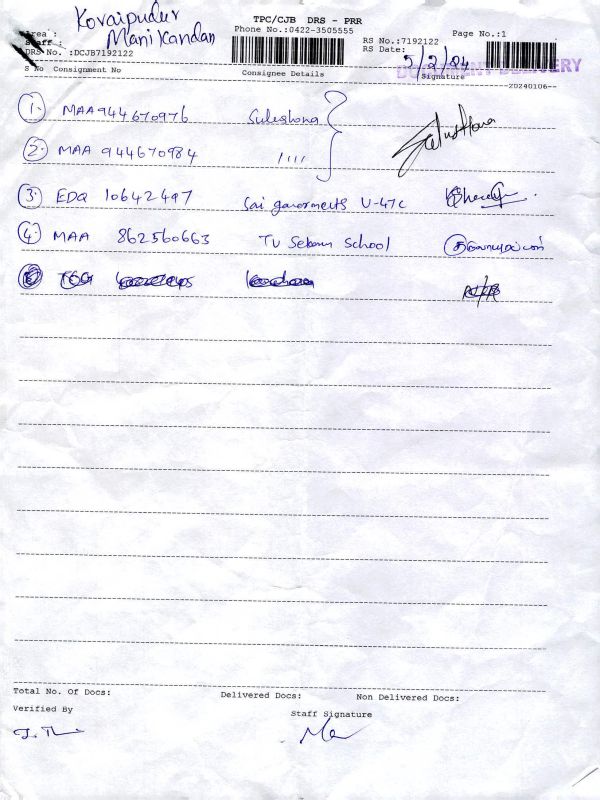 Kovaipudur
TPC/CJB DRS - PRR
Area :
Manikandan
Phone No.:0422-3505555
Page No.:1
Staff :
RS No.:7192122
DRS No. :DCJB7192122
RS Date:
5/2/24
DOCUMENT DELIVERY
S No Consignment No
Consignee Details
Signature
20240106
1. MAA944670976 Suleshona
2. MAA 944670984 ,,,,
3. EDQ 10642497 Sai garorments U-47C
4. MAA 862560663 TV Sekaran School
Total No. Of Docs:
Delivered Docs:
Non Delivered Docs:
Verified By
Staff Signature